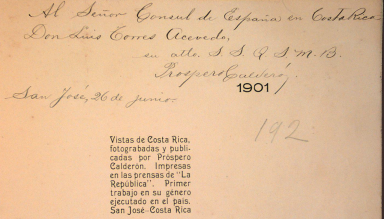 Al Señor Consul de España en Costa Rica
Don Luis Torres Acevedo,
su atto. S. S. Q S. M. B.
Próspero Calderón,
1901
San José, 26 de junio
192
Vistas de Costa Rica,
fotograbadas y publi-
cadas por Próspero
Calderón. Impresas
en las prensas de "La
República". Primer
trabajo en su género
ejecutado en el país.
San José-Costa Rica